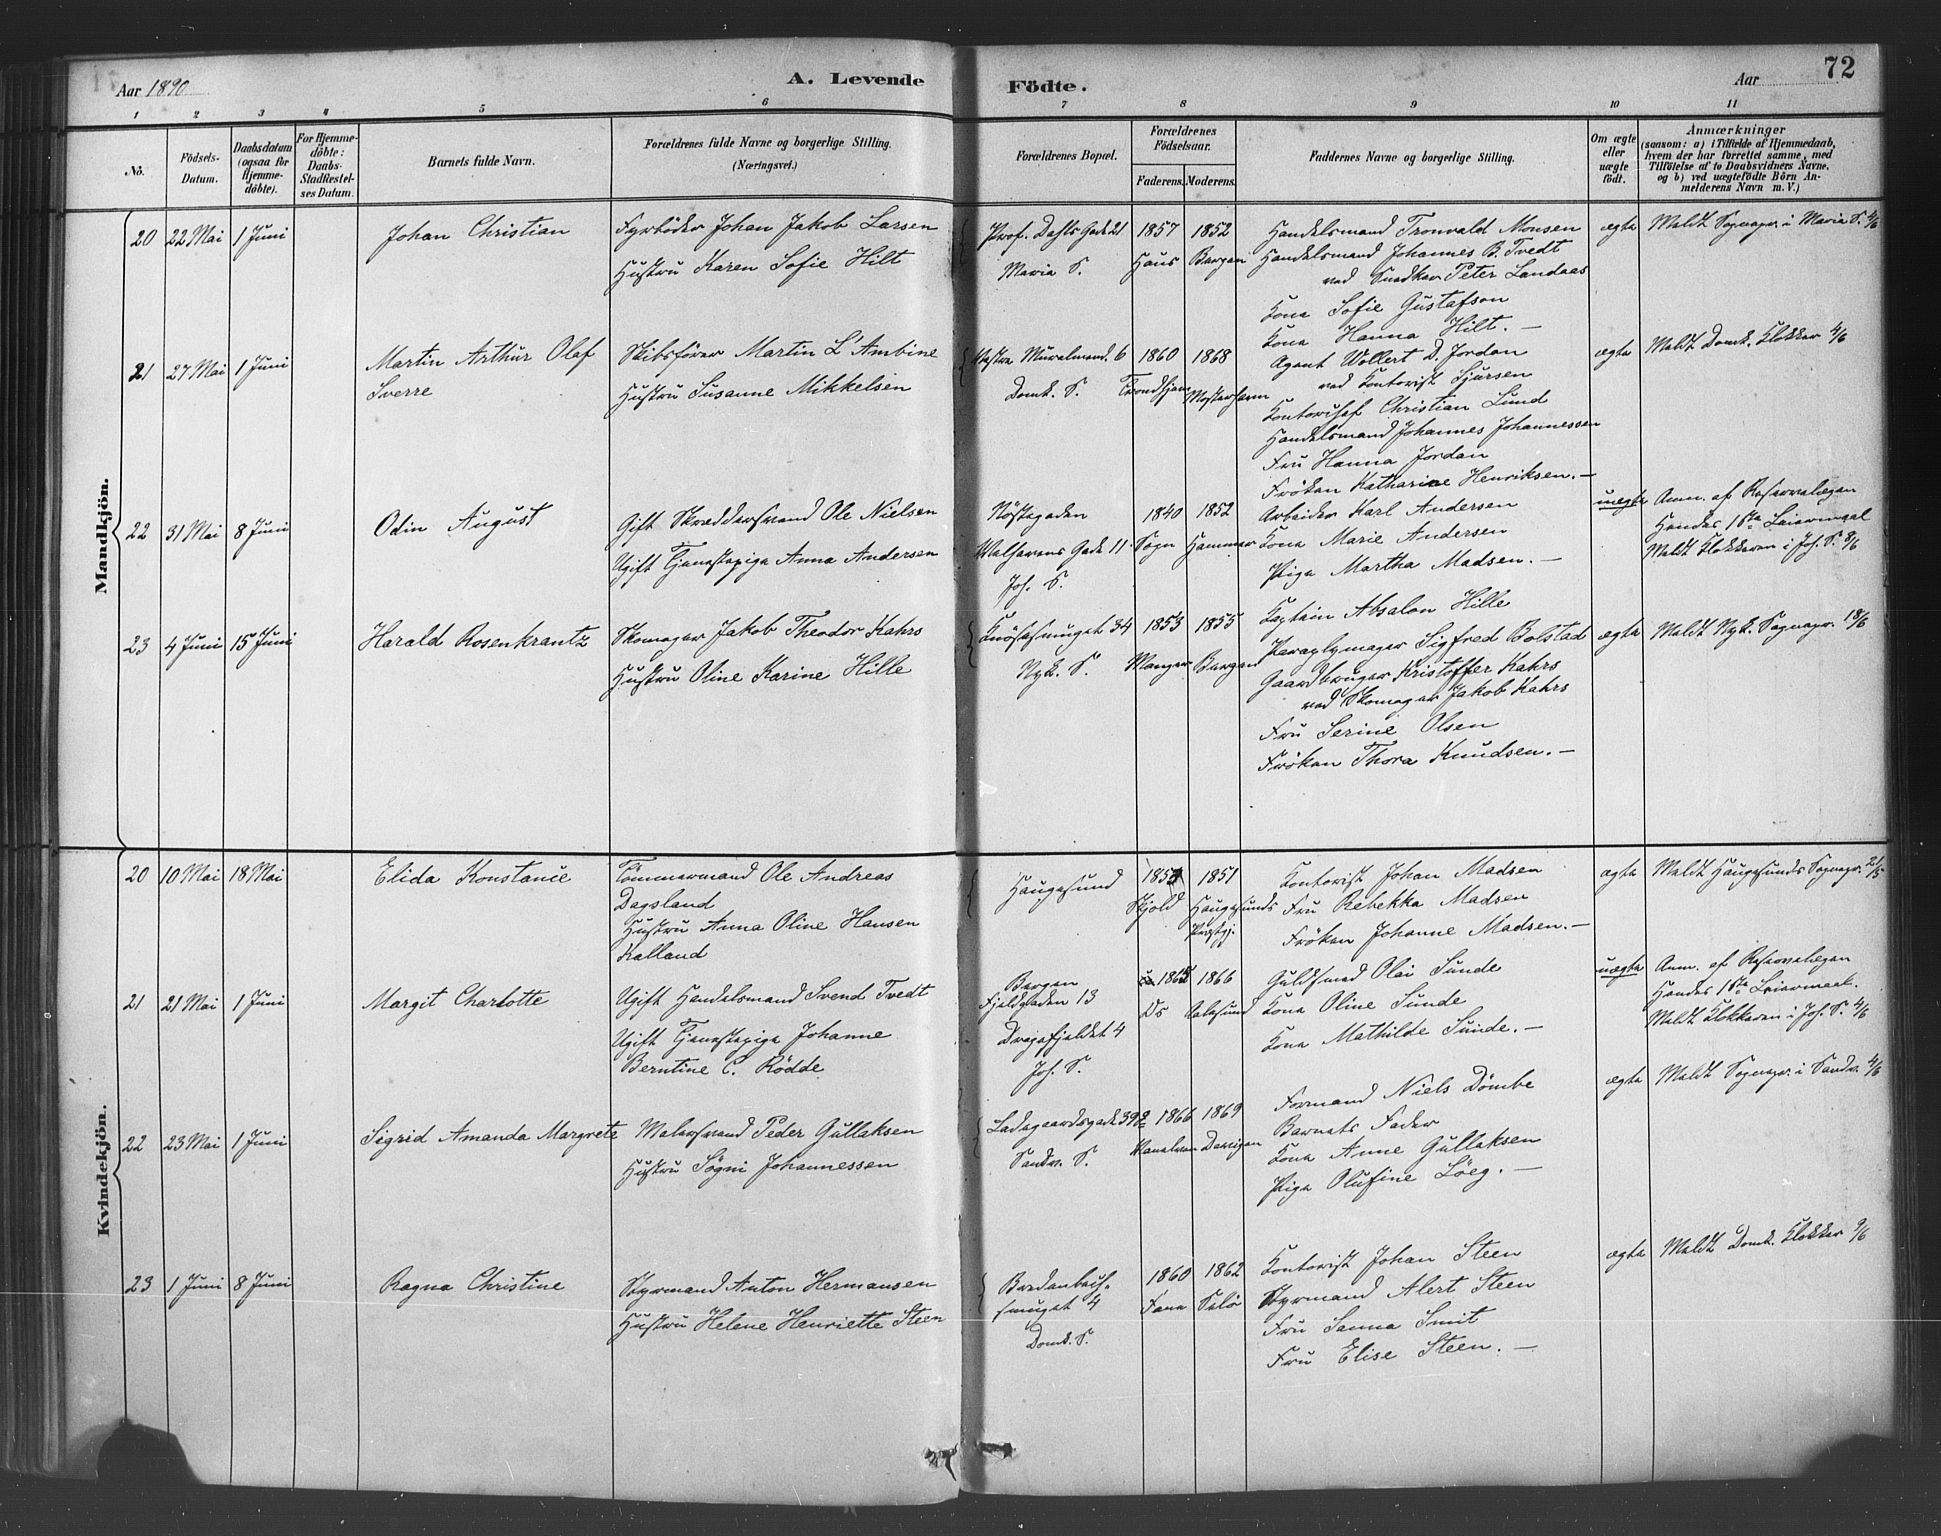 Aar 1890
A. Levende
Födte.
Aar
72
1 2 3 4 5 6 7 8 9 10 11
No.
Födsels-
Datum.
Daabsdatum
(ogsaa for
Hjemme-
döbte).
For Hjemme-
döbte:
Daabs-
Stadfæstel-
ses Datum.
Barnets fulde Navn.
Forældrenes fulde Navne og borgerlige Stilling.
(Næringsvei.)
Forældrenes Bopæl.
Forældrenes
Födselsaar.
Faderens. Moderens.
Faddernes Navne og borgerlige Stilling.
Om ægte
eller
uægte
födt.
Anmærkninger
(saasom: a) i Tilfælde af Hjemmedaab,
hvem der har forrettet samme, med
Tilföielse af to Daabsvidners Navne,
og b) ved uægtefödte Börn An-
melderens Navn m. V.)
Mandkjön.
20 22 Mai 1 Juni
Johan Christian
Fyrböder Johan Jakob Larsen
Hustru Karen Sofie Hilt
Prof. Dahls Gade 21
Maria S.
1857 1852
Haus Bergen
Handelsmand Tronvald Monsen
Handelsmand Johannes B. Tvedt
ved Snedker Peter Landaas
Kona Sofie Gustafson
Kona Hanna Hilt. —
ægte
Meldt Sognepr. i Maria S. 4/6
21 27 Mai 1 Juni
Martin Arthur Olaf
Sverre
Skibsförer Martin L'Ambine
Hustru Susanne Mikkelsen
Vestre Murallmend. 6
Domk. S.
1860 1868
Trondhjem Mosterhavn
Agent Wollert D. Jordan
ved Kontorist Sjursen
Kontorchef Christian Lund
Handelsmand Johannes Johannessen
Fru Hanna Jordan
Fröken Katharine Henriksen. —
ægte
Meldt Domk. Klokker 4/6
22 31 Mai 8 Juni
Odin August
Gift Skræddersvend Ole Nielsen
Ugift Tjenestepige Anna Andersen
Nöstegaden
Welhavens Gade 11.
Joh. S.
1840 1852
Sogn Hammer
Arbeider Karl Andersen
Kone Marie Andersen
Pige Martha Madsen. —
uægte
Anm. af Reservelægen
Hendes 1ste Leiermaal
Meldt Klokkeren i Joh. S. 9/6
23 4 Juni 15 Juni
Harald Rosenkrantz
Skomager Jakob Theodor Kahrs
Hustru Oline Karine Hille
Knösesmuget 34
Nyk. S.
1853 1855
Manger Bergen
Kaptein Absalon Hille
Paraplymager Sigfred Bolstad
Gaardbruger Kristoffer Kahrs
ved Skomager Jakob Kahrs
Fru Serine Olsen
Fröken Thora Knudsen. —
ægte
Meldt Nyk. Sognepr. 18/6
Kvindekjön.
20 10 Mai 18 Mai
Elida Konstance
Tömmermand Ole Andreas
Dagsland
Hustru Anna Oline Hansen
Kalland
Haugesund
1851
Skjold Haugesunds
Præstgj.
Kontorist Johan Madsen
Fru Rebekka Madsen
Fröken Johanne Madsen. —
ægte
Meldt Haugesunds Sognepr. 21/5
21 21 Mai 1 Juni
Margit Charlotte
Ugift Handelsmand Svend Tvedt
Ugift Tjenestepige Johanne
Berntine C. Rödde
Bergen
Fjeldgaden 13
Dragefjeldet 4
Joh. S.
1866
Ds Aalesund
Guldsmed Olai Sunde
Kona Oline Sunde
Kona Mathilde Sunde. —
uægte
Anm. af Reservelægen
Hendes 1ste Leiermaal.
Meldt Klokkeren i Joh. S. 4/6
22 23 Mai 1 Juni
Sigrid Amanda Margrete
Malersvend Peder Gullaksen
Hustru Sögni Johannessen
Ladegaardsgade 39
Sandv. S.
1866 1869
Formand Niels Dömbe
Barnets Fader
Kona Anne Gullaksen
Pige Olufine Löeg. —
ægte
Meldt Sognepr. i Sandv. 4/6
23 1 Juni 8 Juni
Ragna Christine
Styrmand Anton Hermansen
Hustru Helene Henriette Steen
Bredenbech-
smuget 4
Domk. S.
1860 1862
Fane Selö
Kontorist Johan Steen
Styrmand Alert Steen
Fru Sanna Smit
Fru Elise Steen. —
ægte
Meldt Domk. Klokker 9/6